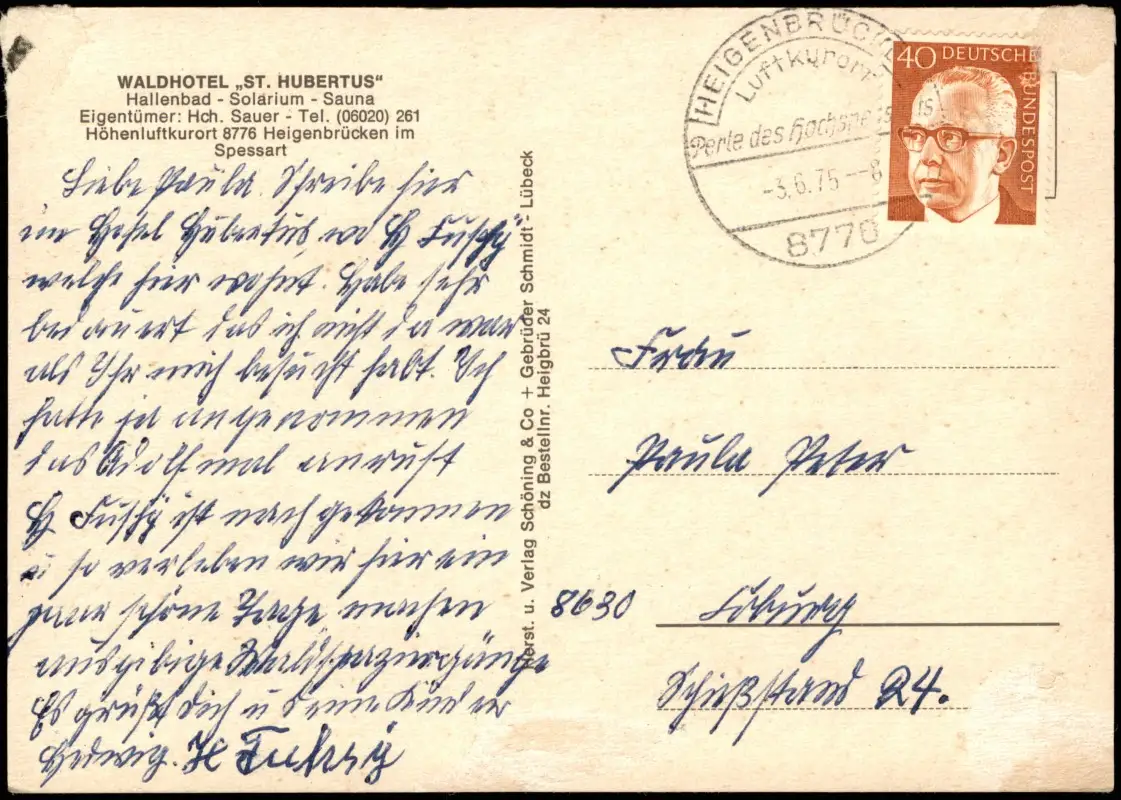 WALDHOTEL „ST. HUBERTUS"
Hallenbad - Solarium - Sauna
Eigentümer: Hch. Sauer - Tel. (06020) 261
Höhenluftkurort 8776 Heigenbrücken im
Spessart
Liebe Paula. Schreibe hier
im Hotel Hubertus wo H
welche hier wohnt. Habe sehr
bedauert das ich nicht da war
als Ihr mich besucht habt. Ich
hatte ja angenommen
das Adolf mal anruft
H ist nachgekommen
u so verleben wir hier ein
paar schöne Tage, machen
ausgibige Waldspaziergänge
Es grüßt Dich u Deine Kinder
Hedwig. H
Herst. u. Verlag Schöning & Co + Gebrüder Schmidt - Lübeck
dz Bestellnr. Heigbrü 24
HEIGENBRÜCKEN
Luftkurort
Perle des Hochspessarts
-3.6.75--8
8770
40 DEUTSCHE BUNDESPOST
Frau
Paula Peter
8630 Coburg
Schießstand 24.